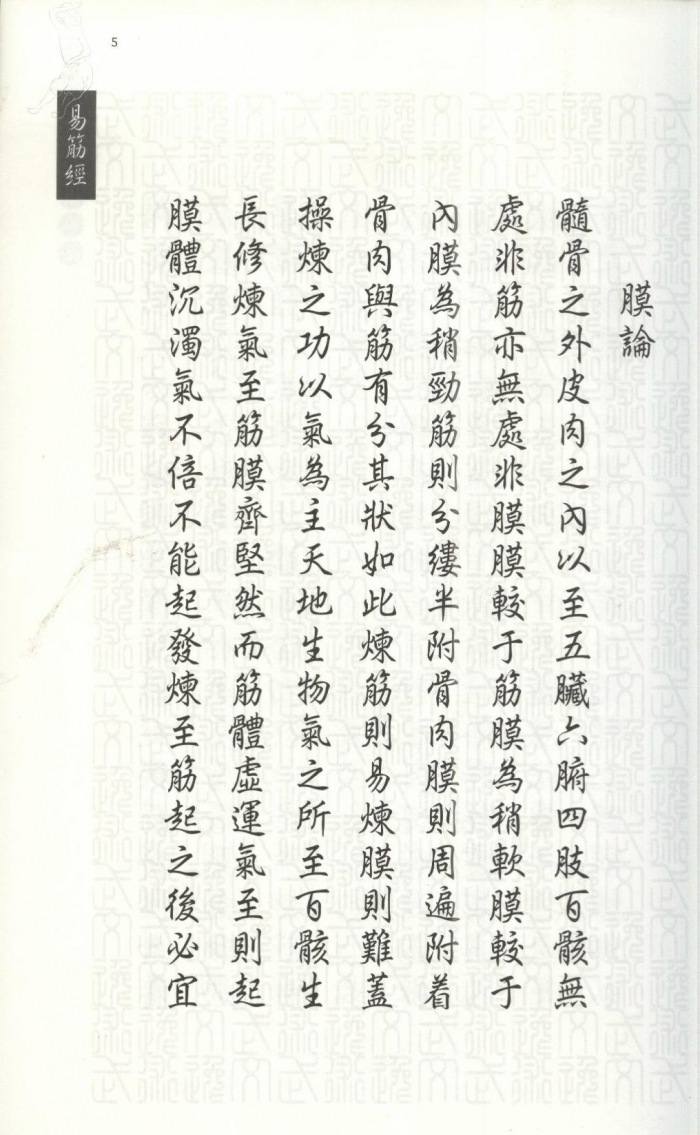 5
易筋經
膜論
髓骨之外皮肉之內以至五臟六腑四肢百骸無
處非筋亦無處非膜膜較于筋膜為稍軟膜較于
內膜為稍勁筋則分縷半附骨肉膜則周遍附着
骨肉與筋有分其狀如此煉筋則易煉膜則難蓋
操煉之功以氣為主天地生物氣之所至百骸生
長修煉氣至筋膜齊堅然而筋體虛運氣至則起
膜體沉濁氣不倍不能起發煉至筋起之後必宜